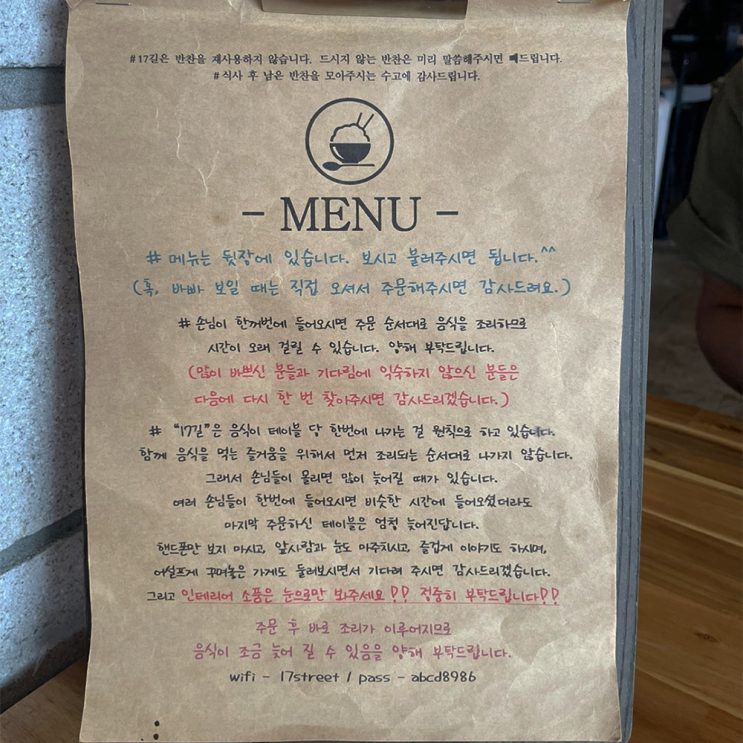 #17길은 반찬을 재사용하지 않습니다. 드시지 않는 반찬은 미리 말씀해주시면 빼드립니다.
#식사 후 남은 반찬을 모아주시는 수고에 감사드립니다.
- MENU -
# 메뉴는 뒷장에 있습니다. 보시고 불러주시면 됩니다.^^
(혹, 바빠 보일 때는 직접 오셔서 주문해주시면 감사드려요.)
# 손님이 한꺼번에 들어오시면 주문 순서대로 음식을 조리하므로
시간이 오래 걸릴 수 있습니다. 양해 부탁드립니다.
(맘이 바쁘신 분들과 기다림에 익숙하지 않으신 분들은
다음에 다시 한 번 찾아주시면 감사드리겠습니다.)
# "17길"은 음식이 테이블 당 한번에 나가는 걸 원칙으로 하고 있습니다.
함께 음식을 먹는 즐거움을 위해서 먼저 조리되는 순서대로 나가지 않습니다.
그래서 손님들이 몰리면 많이 늦어질 때가 있습니다.
여러 손님들이 한번에 들어오시면 비슷한 시간에 들어오셨더라도
마지막 주문하신 테이블은 엄청 늦어진답니다.
핸드폰만 보지 마시고, 앞사람과 눈도 마주치시고, 즐겁게 이야기도 하시며,
어설프게 꾸며놓은 가게도 둘러보시면서 기다려 주시면 감사드리겠습니다.
그리고 인테리어 소품은 눈으로만 봐주세요!! 정중히 부탁드립니다!!
주문 후 바로 조리가 이루어지므로
음식이 조금 늦어 질 수 있음을 양해 부탁드립니다.
wifi - 17street / pass - abcd8986